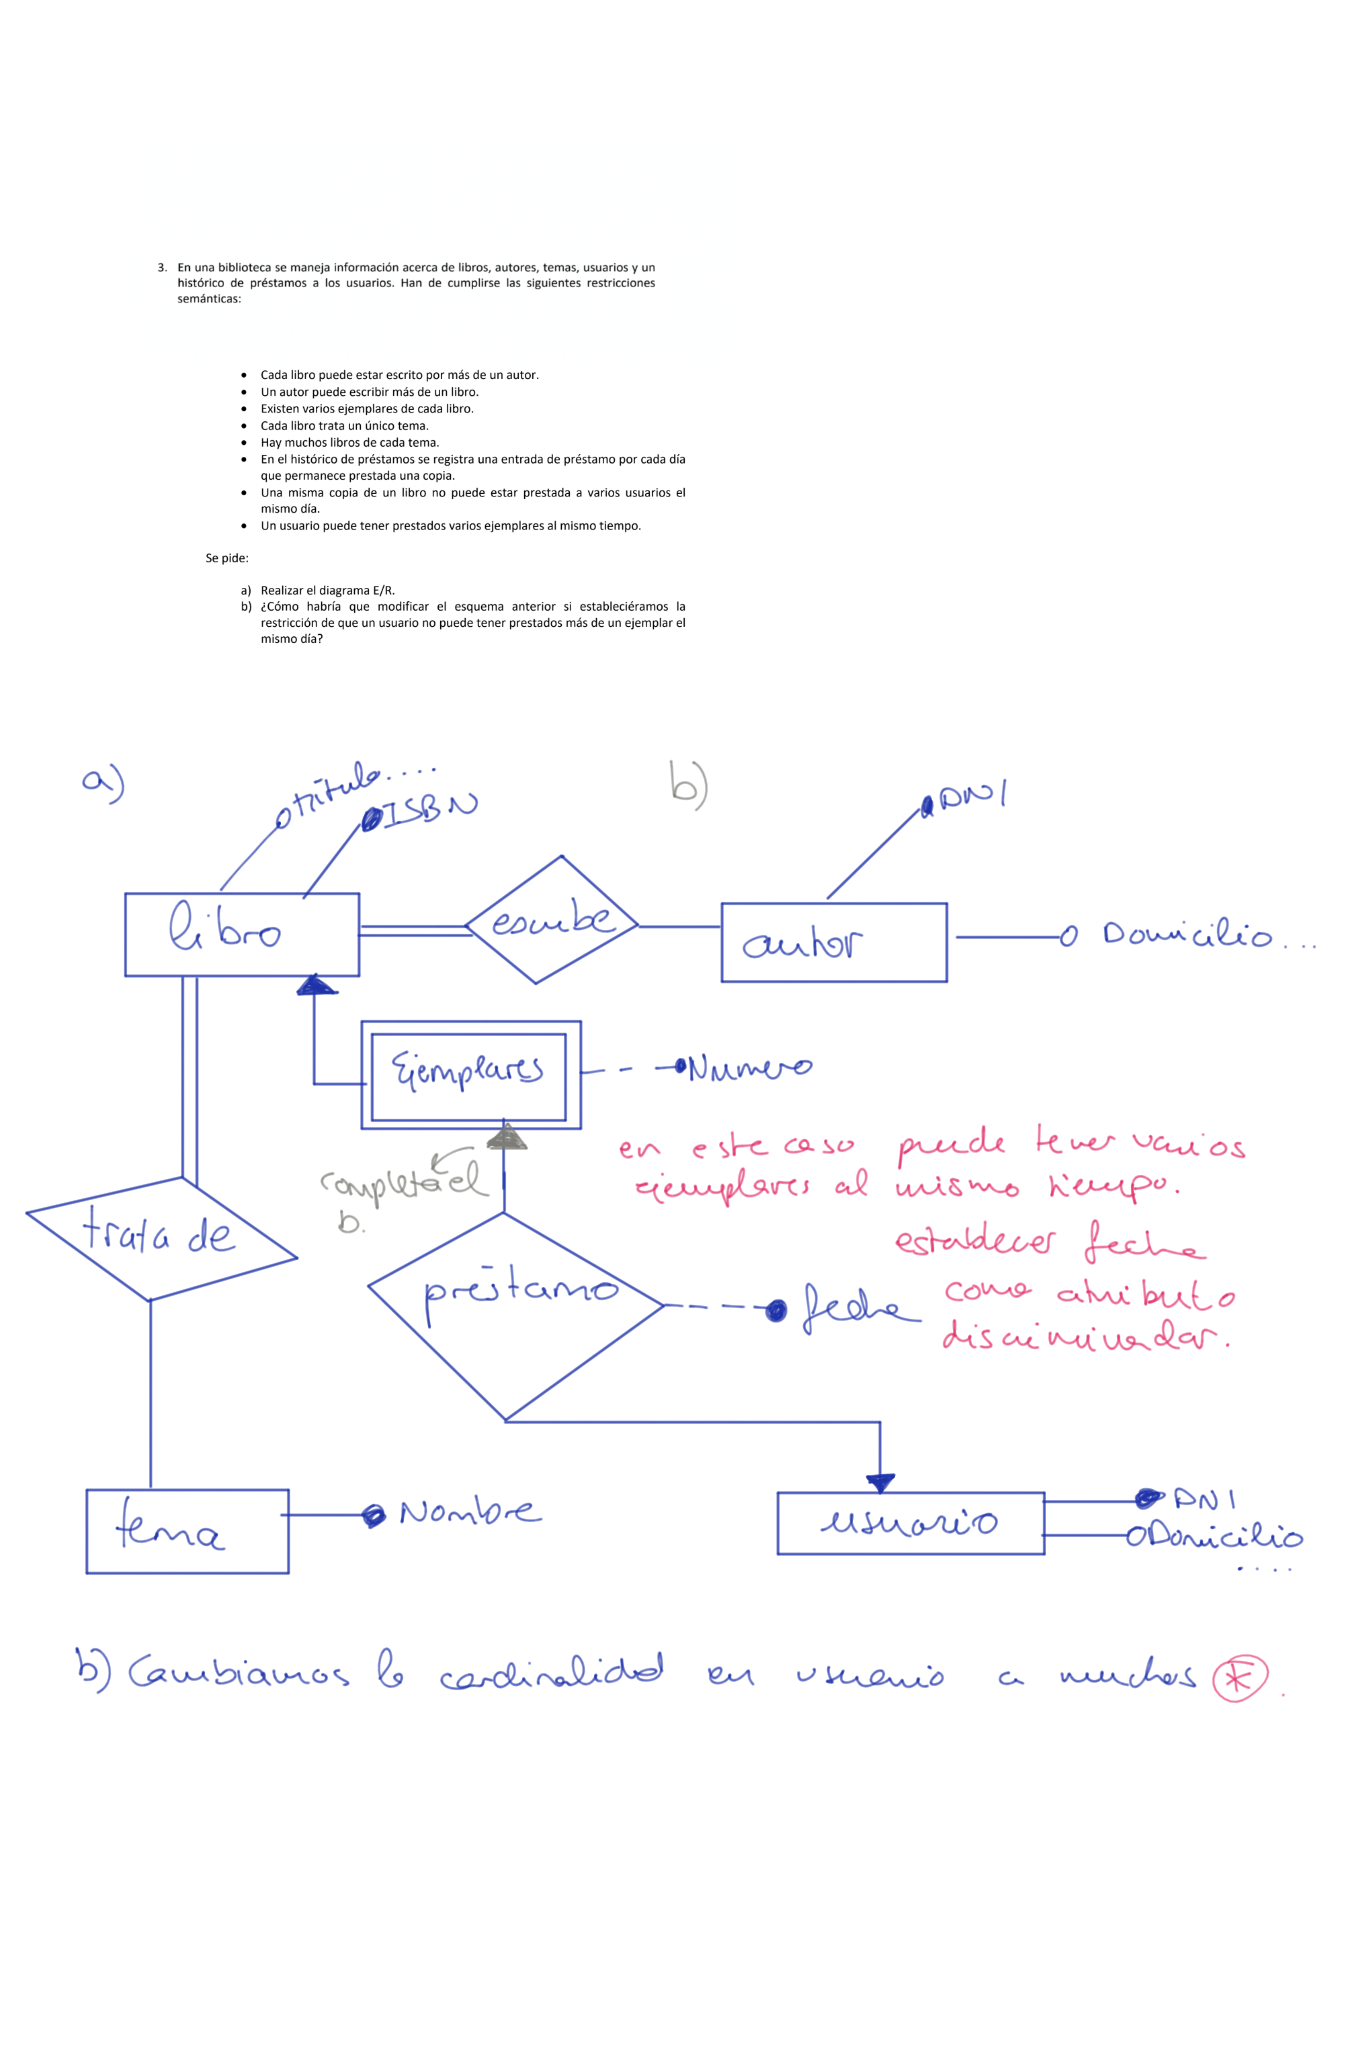 3. En una biblioteca se maneja información acerca de libros, autores, temas, usuarios y un
histórico de préstamos a los usuarios. Han de cumplirse las siguientes restricciones
semánticas:
• Cada libro puede estar escrito por más de un autor.
• Un autor puede escribir más de un libro.
• Existen varios ejemplares de cada libro.
• Cada libro trata un único tema.
• Hay muchos libros de cada tema.
• En el histórico de préstamos se registra una entrada de préstamo por cada día
que permanece prestada una copia.
• Una misma copia de un libro no puede estar prestada a varios usuarios el
mismo día.
• Un usuario puede tener prestados varios ejemplares al mismo tiempo.
Se pide:
a) Realizar el diagrama E/R.
b) ¿Cómo habría que modificar el esquema anterior si estableciéramos la
restricción de que un usuario no puede tener prestados más de un ejemplar el
mismo día?
a)
título....
ISBN
b)
DNI
libro
escribe
autor
Domicilio...
Ejemplares
Numero
completa el
b.
en este caso puede tener varios
ejemplares al mismo tiempo.
establecer fecha
como atributo
discriminador.
trata de
préstamo
fecha
tema
Nombre
usuario
DNI
Domicilio
....
b) Cambiamos la cardinalidad en usuario a muchos *.